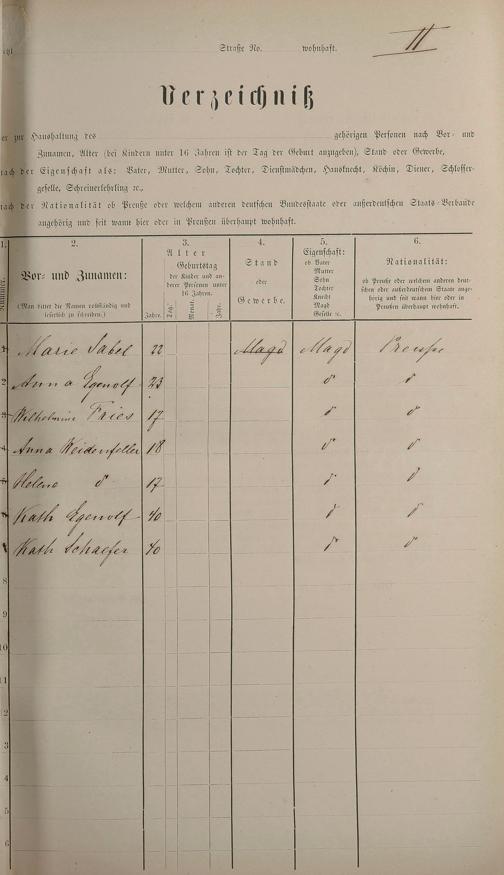 Straße No. wohnhaft.
II
Verzeichniß
er zur Haushaltung des gehörigen Personen nach Vor- und
Zunamen, Alter (bei Kindern unter 16 Jahren ist der Tag der Geburt anzugeben), Stand oder Gewerbe,
nach der Eigenschaft als: Vater, Mutter, Sohn, Tochter, Dienstmädchen, Hausknecht, Köchin, Diener, Schlosser-
geselle, Schreinerlehrling ꝛc.,
nach der Nationalität ob Preuße oder welchem anderen deutschen Bundesstaate oder außerdeutschem Staats-Verbande
angehörig und seit wann hier oder in Preußen überhaupt wohnhaft.
1. 2. 3. 4. 5. 6.
Nummer.
Vor- und Zunamen:
(Man bittet die Namen vollständig und
leserlich zu schreiben.)
Alter
Geburtstag
der Kinder und an-
derer Personen unter
16 Jahren.
Jahre. Tag. Monat. Jahr.
Stand
oder
Gewerbe.
Eigenschaft:
ob Vater
Mutter
Sohn
Tochter
Knecht
Magd
Geselle ꝛc.
Nationalität:
ob Preuße oder welchem anderen deut-
schen oder außerdeutschem Staate ange-
hörig und seit wann hier oder in
Preußen überhaupt wohnhaft.
1 Marie Sabel 22 Magd Magd Preuße
2 Anna Egenolf 23 d d
3 Wilhelmine Fries 17 d d
4 Anna Weidenfeller 18 d d
5 Helene d 17 d d
Kath Egenolf 40 d d
Kath Schaefer 40 d d
8
9
10
1
2
3
4
5
6